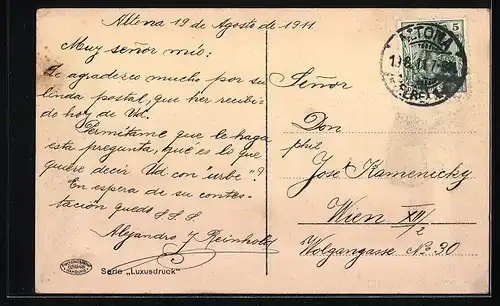 Altona 19 de Agosto de 1911
Muy señor mío:
Le agradezco mucho por su
linda postal, que her recibi-
do hoy de Vd.
Permitame que le haga
esta pregunta, qué es lo que
quiere decir Vd con "urbe"?
En espera de su contes-
tación quedo S.S.S.
Alejandro J Reinhold
Serie „Luxusdruck"
5
ALTONA
19.8.11.7-8
Señor
Don
phil
José Kamenicky
Wien XII/2
Wolgangasse No. 30